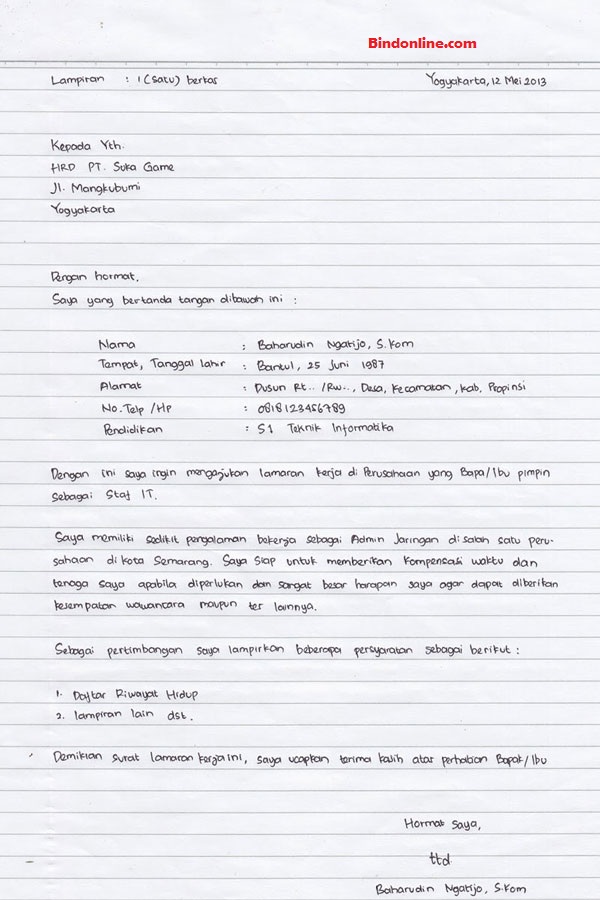 Bindonline.com
Lampiran : 1 (satu) berkas Yogyakarta, 12 Mei 2013
Kepada Yth.
HRD PT. Suka Game
Jl. Mangkubumi
Yogyakarta
Dengan hormat,
Saya yang bertanda tangan dibawah ini :
Nama : Baharudin Ngatijo, S.Kom
Tempat, Tanggal lahir : Bantul, 25 Juni 1987
Alamat : Dusun Rt.. /Rw.., Desa, Kecamatan, kab, Propinsi
No. Telp /Hp : 0818123456789
Pendidikan : S1 Teknik Informatika
Dengan ini saya ingin mengajukan lamaran kerja di Perusahaan yang Bapa/Ibu pimpin
sebagai Staf IT.
Saya memiliki sedikit pengalaman bekerja sebagai Admin Jaringan di salah satu peru-
sahaan di kota Semarang. Saya siap untuk memberikan kompensasi waktu dan
tenaga saya apabila diperlukan dan sangat besar harapan saya agar dapat diberikan
kesempatan wawancara maupun tes lainnya.
Sebagai pertimbangan saya lampirkan beberapa persyaratan sebagai berikut :
1. Daftar Riwayat Hidup
2. lampiran lain dst.
Demikian surat lamaran kerja ini, saya ucapkan terima kasih atas perhatian Bapak/Ibu
Hormat Saya,
ttd
Baharudin Ngatijo, S.Kom